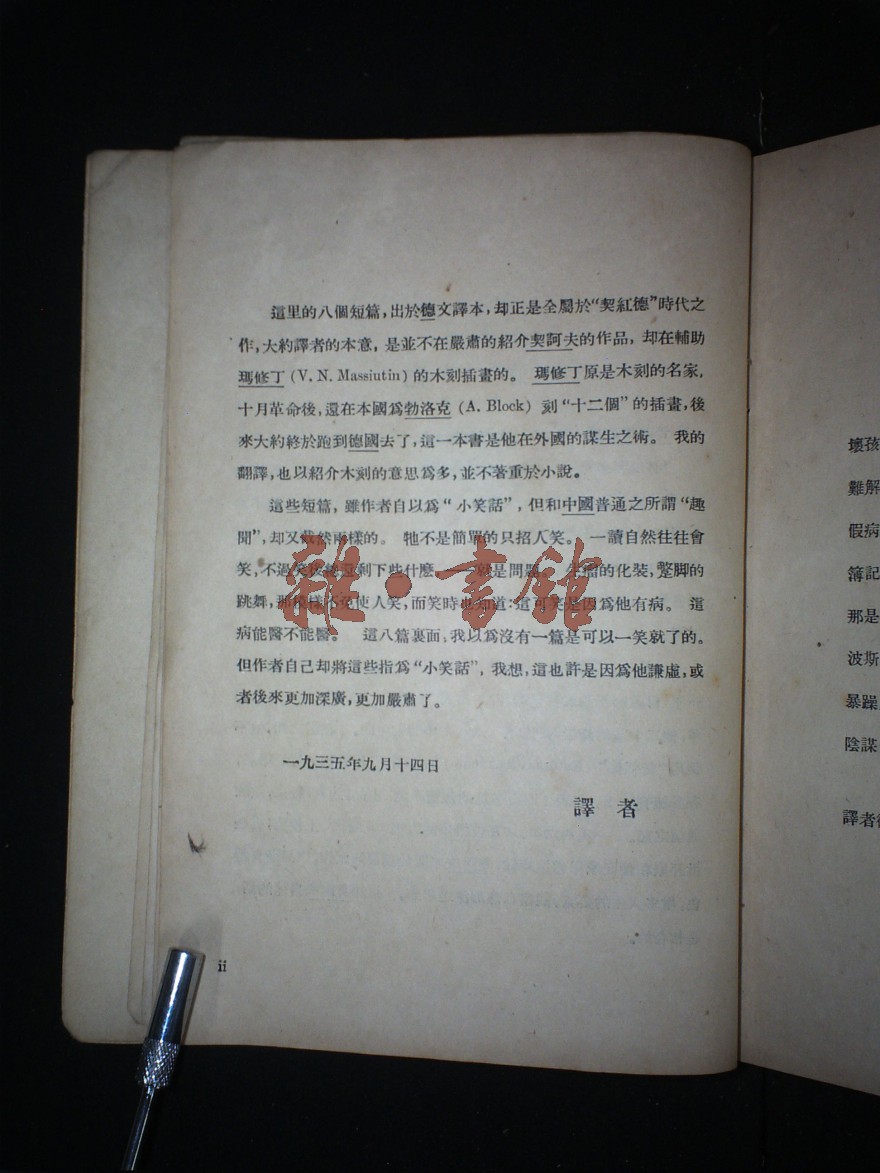 這里的八個短篇，出於德文譯本，却正是全屬於“契紅德”時代之
作，大約譯者的本意，是並不在嚴肅的紹介契阿夫的作品，却在輔助
瑪修丁（V. N. Massiutin）的木刻插畫的。瑪修丁原是木刻的名家，
十月革命後，還在本國爲勃洛克（A. Block）刻“十二個”的插畫，後
來大約終於跑到德國去了，這一本書是他在外國的謀生之術。我的
翻譯，也以紹介木刻的意思爲多，並不著重於小說。
這些短篇，雖作者自以爲“小笑話”，但和中國普通之所謂“趣
聞”，却又截然兩樣的。牠不是簡單的只招人笑。一讀自然往往會
笑，不過笑後總還剩下些什麼——就是問題。生瘤的化裝，蹩脚的
跳舞，那模樣不免使人笑，而笑時也知道：這可笑是因爲他有病。這
病能醫不能醫。這八篇裏面，我以爲沒有一篇是可以一笑就了的。
但作者自己却將這些指爲“小笑話”，我想，這也許是因爲他謙虛，或
者後來更加深廣，更加嚴肅了。
一九三五年九月十四日
譯者
ii
壞孩
難解
假病
簿記
那是
波斯
暴躁
陰謀
譯者
雜·書館